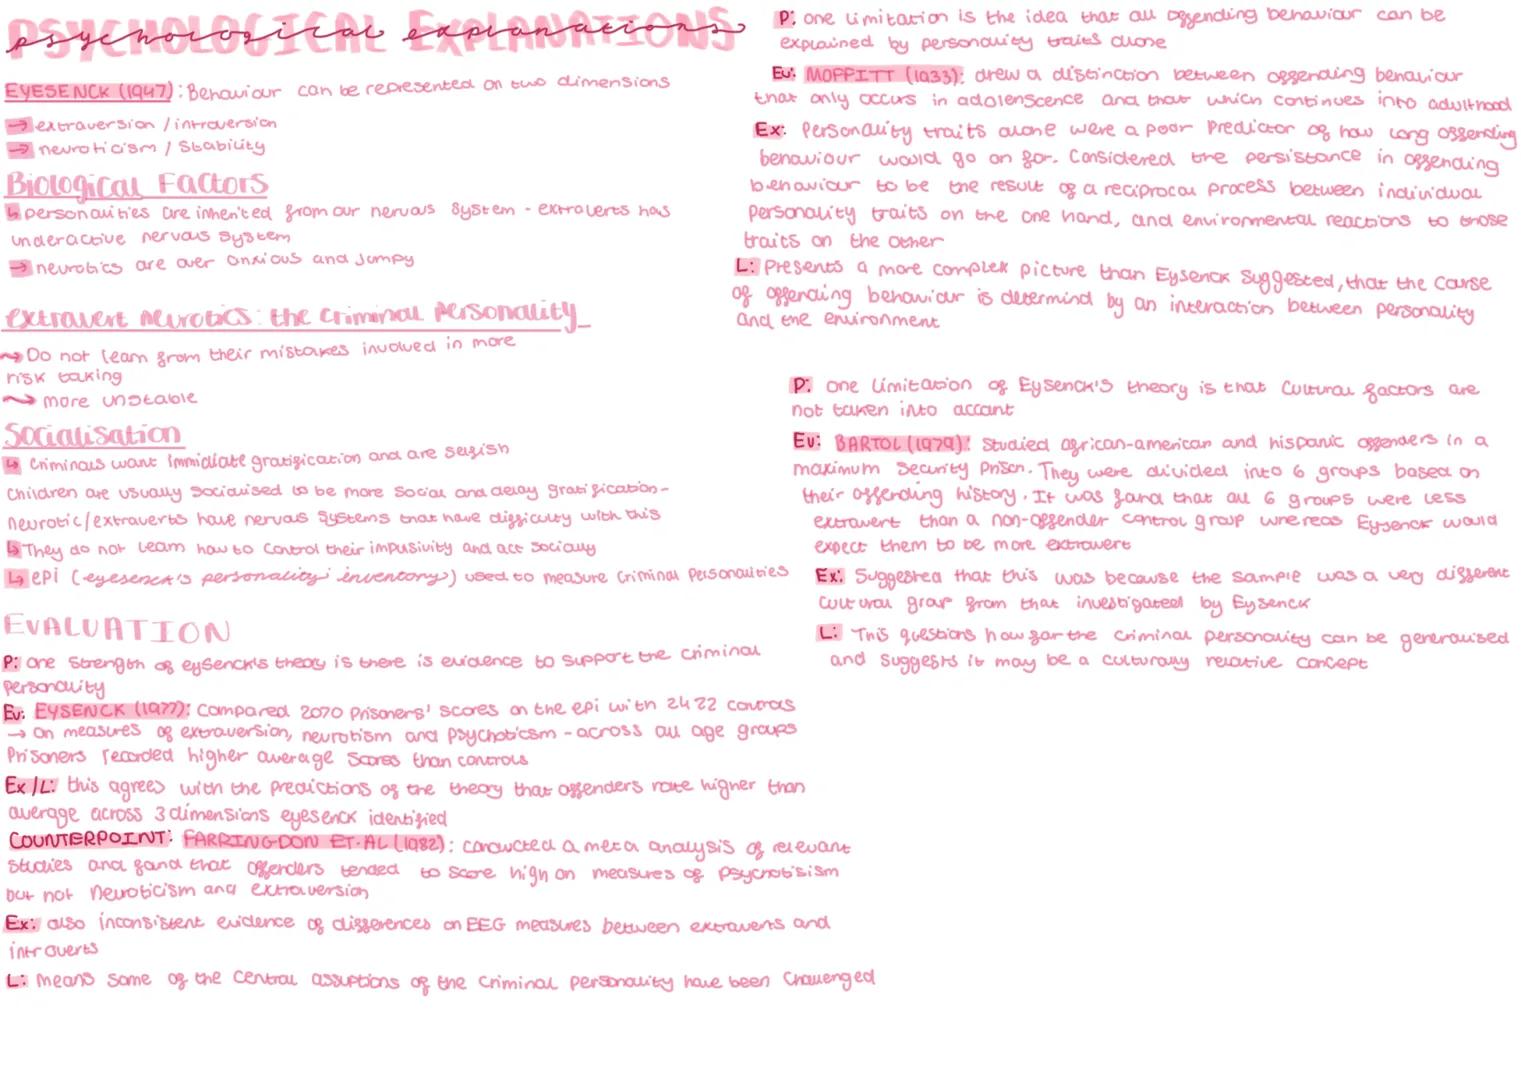 PSYCHOLOGICAL EXPLANATIONS
psychological explanations
EYESENCK (1947): Behaviour can be represented on two dimensions
→ extraversion / introversion
→ neuroticism / Stability
Biological Factors
↳ personalities are inherited from our nervous system - extraverts has
underactive nervous system
→ neurotics are over anxious and jumpy
extravert neurotics: the criminal personality
→ Do not learn from their mistakes involved in more
risk taking
→ more unstable
Socialisation
↳ criminals want immidiate gratification and are selfish
Children are usually socialised to be more social and delay gratification-
neurotic/extraverts have nervous systems that have difficulty with this
↳ They do not learn how to control their impusivity and act socially
↳ epi (eyesenck's personality inventory) used to measure criminal personalities
EVALUATION
P: one strength of eysenck's theory is there is evidence to support the criminal
personality
Ev: EYSENCK (1977): Compared 2070 prisoners' scores on the epi with 2422 controls
→ on measures of extraversion, neurotism and psychoticsm - across all age groups
Prisoners recorded higher average scores than controls
Ex/L: this agrees with the predictions of the theory that offenders rate higher than
average across 3 dimensions eyesenck identified
COUNTERPOINT: FARRINGDON ET.AL (1982): conducted a meta analysis of relevant
studies and found that offenders tended to score high on measures of psychotisism
but not neuroticism and extraversion
Ex: also inconsistent evidence of differences on EEG measures between extraverts and
introverts
L: means some of the central assuptions of the criminal personality have been challenged
P: one limitation is the idea that all offending behaviour can be
explained by personality traits alone
Ev: MOFFITT (1933): drew a distinction between offending behaviour
that only occurs in adolenscence and that which continues into adulthood
Ex: Personality traits alone were a poor predictor of how long offending
behaviour would go on for. Considered the persistance in offending
behaviour to be the result of a reciprocal process between individual
personality traits on the one hand, and environmental reactions to those
traits on the other
L: Presents a more complex picture than Eysenck suggested, that the course
of offending behaviour is determind by an interaction between personality
and the environment
P: one limitation of Eysenck's theory is that cultural factors are
not taken into account
Ev: BARTOL (1979): Studied african-american and hispanic offenders in a
maximum security prison. They were divided into 6 groups based on
their offending history. It was found that all 6 groups were less
extravert than a non-offender control group whereas Eysenck would
expect them to be more extravert
Ex: Suggested that this was because the sample was a very different
cultural group from that investigated by Eysenck
L: This questions how far the criminal personality can be generalised
and suggests it may be a culturally relative concept